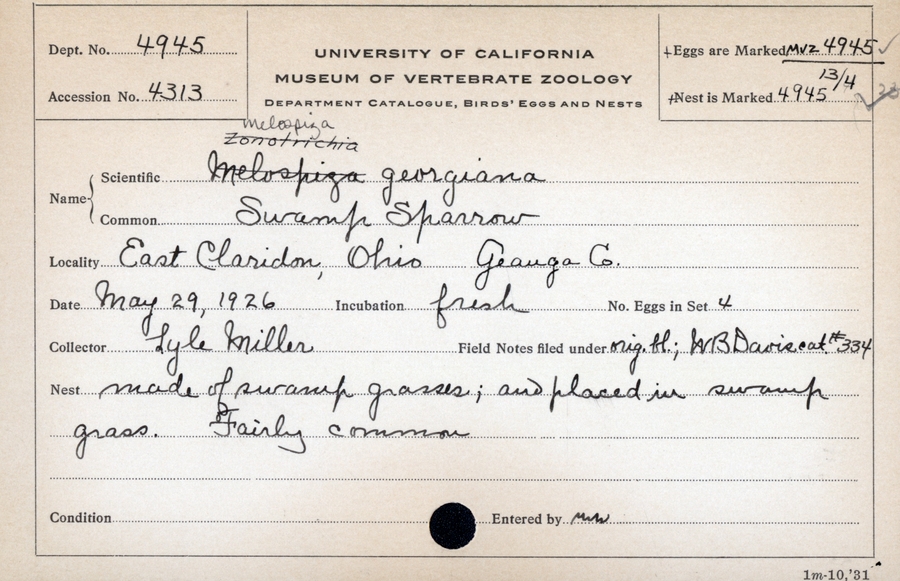 Dept. No. 4945
Accession No. 4313
UNIVERSITY OF CALIFORNIA
MUSEUM OF VERTEBRATE ZOOLOGY
DEPARTMENT CATALOGUE, BIRDS' EGGS AND NESTS
Eggs are Marked MVZ 4945
13/4
Nest is Marked 4945
Melospiza
Zonotrichia
Name Scientific Melospiza georgiana
Common Swamp Sparrow
Locality East Claridon, Ohio Geauga Co.
Date May 29, 1926 Incubation fresh No. Eggs in Set 4
Collector Lyle Miller Field Notes filed under orig. bl.; WB Davis cat #334
Nest made of swamp grasses; and placed in swamp
grass. Fairly common
Condition Entered by
1m-10,'31